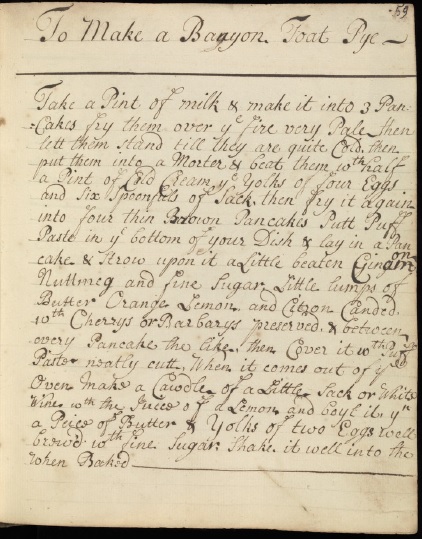 59
To Make a Banyon Toat Pye
Take a Pint of milk & make it into 3 Pan:
=Cakes fry them over ye fire very Pale then
lett them stand till they are quite Cold then
put them into a Morter & beat them wth half
a Pint of Cold Cream ye Yolks of four Eggs
and Six Spoonfuls of Sack, then fry it again
into four thin Brown Pancakes Putt Puff
Paste in ye bottom of your Dish & lay in a Pan
cake & Strow upon it a Little beaten
Nuttmeg and fine Sugar Little lumps of
Butter Orange Lemon and Citron Canded
wth Cherrys or Barbarys preserved & between
every Pancake the like, then Cover it wth Puff
Paste neatly cutt, When it comes out of ye
Oven make a Cawdle of a Little Sack or White
Wine wth the Juice of a Lemon and boyl it yn
a Peice of Butter & Yolks of two Eggs well
brew'd wth fine Sugar Shake it well into the
when Baked